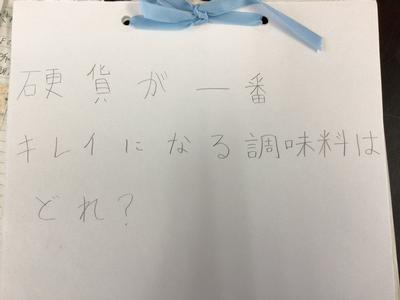 硬貨が一番
キレイになる調味料は
どれ?